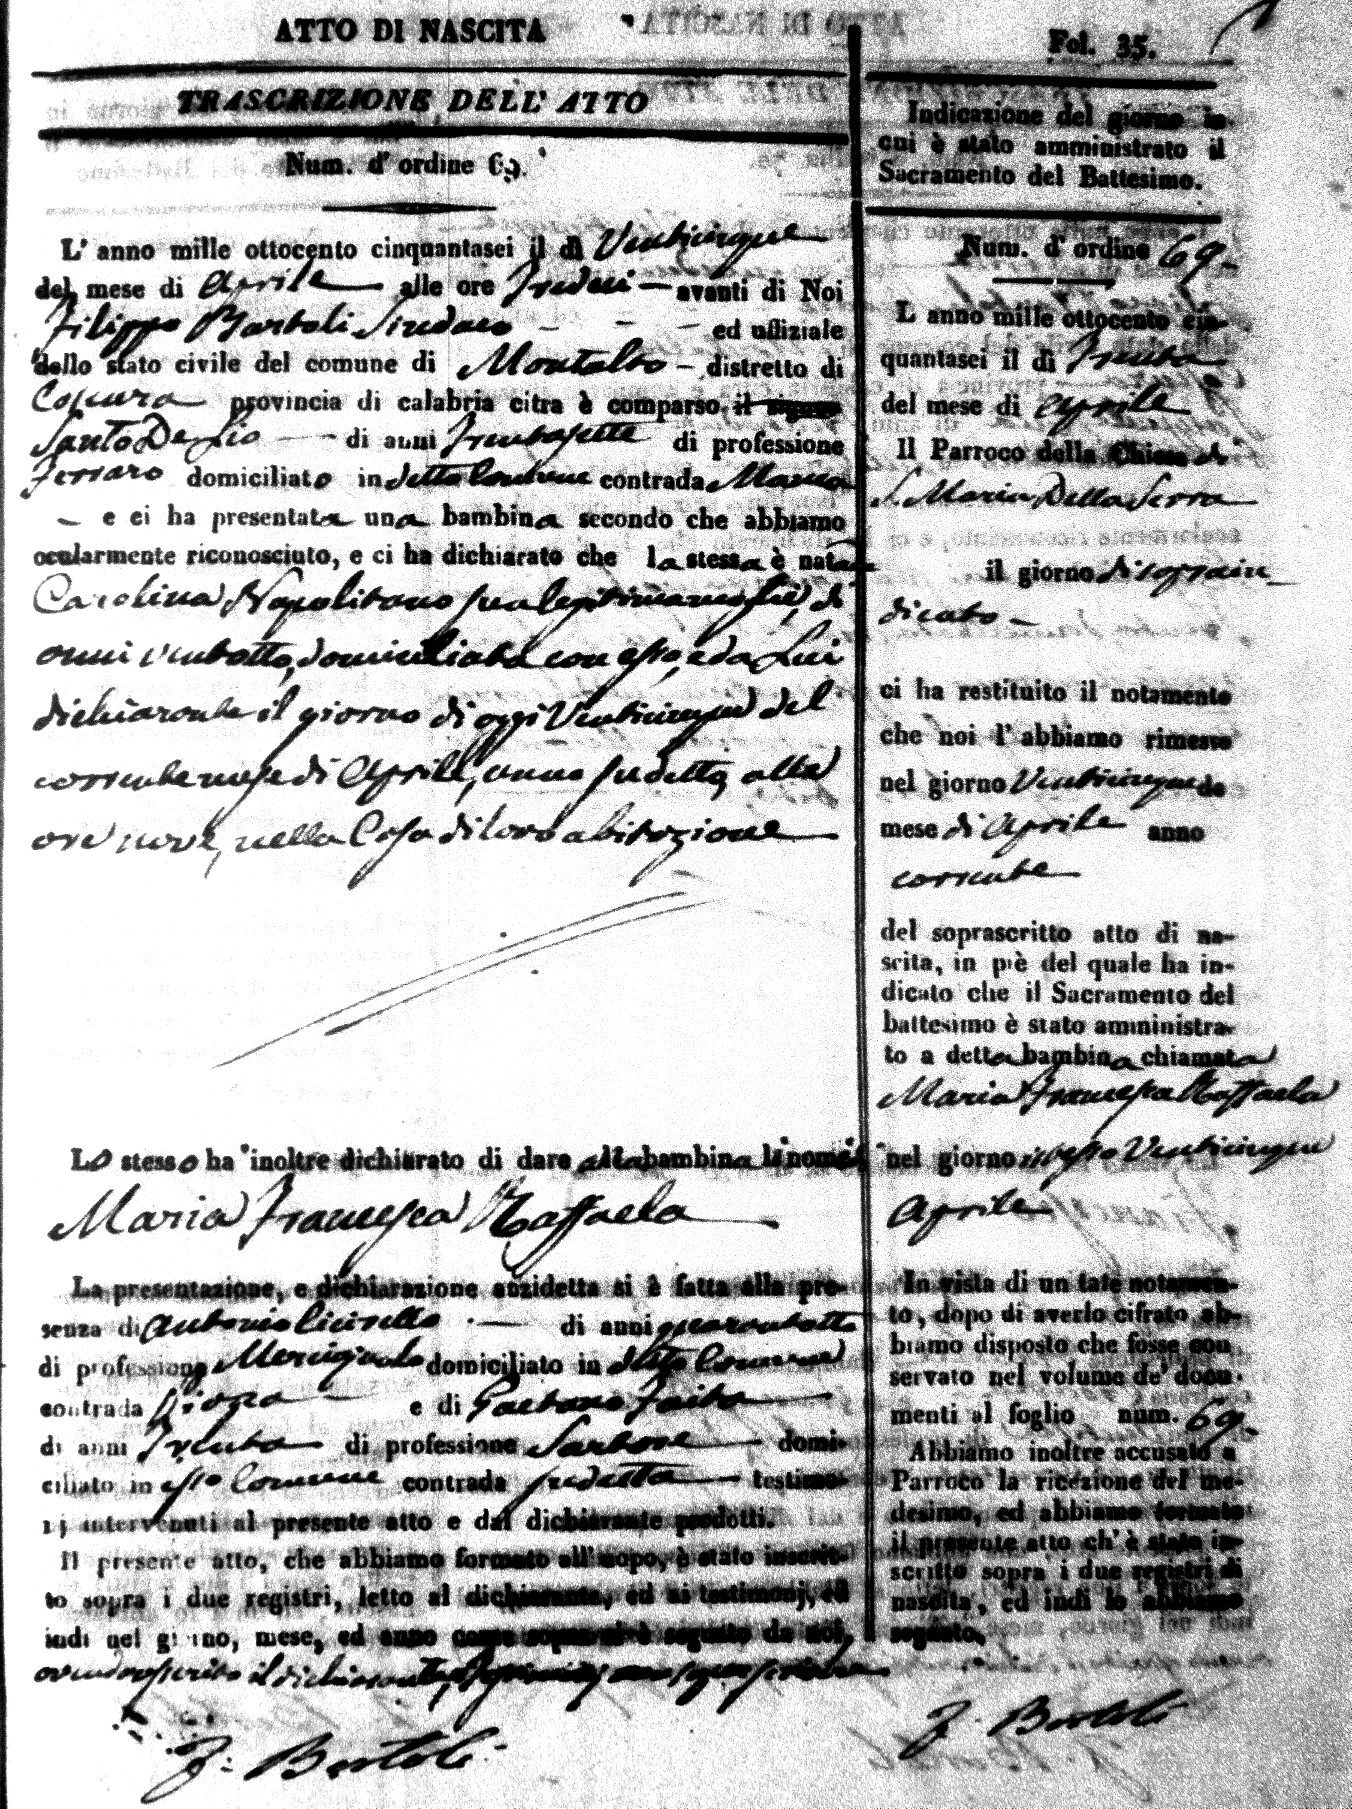 ATTO DI NASCITA
TRASCRIZIONE DELL' ATTO
Num. d' ordine 69.
L' anno mille ottocento cinquantasei il dì Venticinque
del mese di Aprile alle ore Tredeci avanti di Noi
Filippo Bartoli Sindaco ed uffiziale
dello stato civile del comune di Montalto distretto di
Cosenza provincia di calabria citra è comparso il signor
Santo De Lio di anni Trentasette di professione
Ferraro domiciliato in detto Comune contrada
e ci ha presentata una bambina secondo che abbiamo
ocularmente riconosciuto, e ci ha dichiarato che la stessa è nata da
Carolina Napolitano sua legittima moglie, di
anni ventotto, domiciliata con esso, e da Lui
dichiarante il giorno di oggi Venticinque del
corrente mese di Aprile, anno sudetto, alle
ore nove, nella Casa di loro abitazione
Lo stesso ha inoltre dichiarato di dare alla bambina li nomi
Maria Francesca Raffaela
La presentazione, e dichiarazione anzidetta si è fatta alla pre-
senza di Antonio di anni quarantotto
di professione domiciliato in detto Comune
contrada e di Gaetano
di anni Trenta di professione Sartore domi-
ciliato in esso Comune contrada sudetta testimo-
nj intervenuti al presente atto e dal dichiarante prodotti.
Il presente atto, che abbiamo formato all' uopo, è stato inscrit-
to sopra i due registri, letto al dichiarante, ed ai testimonj, ed
indi nel giorno, mese, ed anno come sopra si è segnato da noi,
avendo asserito il dichiarante,
F. Bartoli
Fol. 35.
Indicazione del giorno in
cui è stato amministrato il
Sacramento del Battesimo.
Num. d' ordine 69
L anno mille ottocento cin-
quantasei il dì Trenta
del mese di Aprile
Il Parroco della Chiesa di
S. Maria Della Serra
il giorno di sopra in
dicato
ci ha restituito il notamento
che noi l' abbiamo rimesso
nel giorno Venticinque de
mese di Aprile anno
corrente
del soprascritto atto di na-
scita, in piè del quale ha in-
dicato che il Sacramento del
battesimo è stato amministra-
to a detta bambina chiamata
Maria Francesca Raffaela
nel giorno istesso Venticinque
Aprile
In vista di un tale notamen-
to, dopo di averlo cifrato, ab-
biamo disposto che fosse con
servato nel volume de' docu-
menti al foglio num. 69
Abbiamo inoltre accusato a
Parroco la ricezione del me-
desimo, ed abbiamo formato
il presente atto ch' è stato in-
scritto sopra i due registri di
nascita, ed indi lo abbiamo
segnato.
F. Bartoli